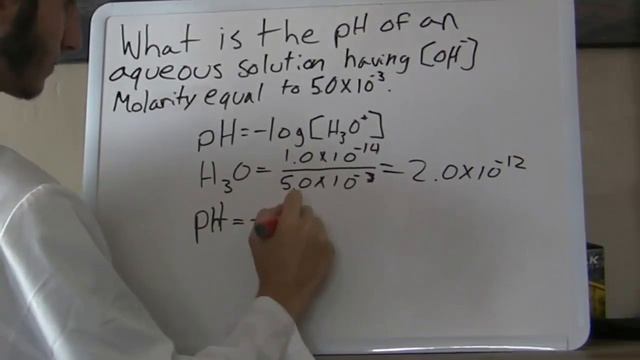 What is the pH of an
aqueous solution having [OH⁻]
Molarity equal to 5.0×10⁻³.
pH=-log[H₃O⁺]
H₃O= 1.0×10⁻¹⁴ / 5.0×10⁻³ = 2.0×10⁻¹²
pH=-